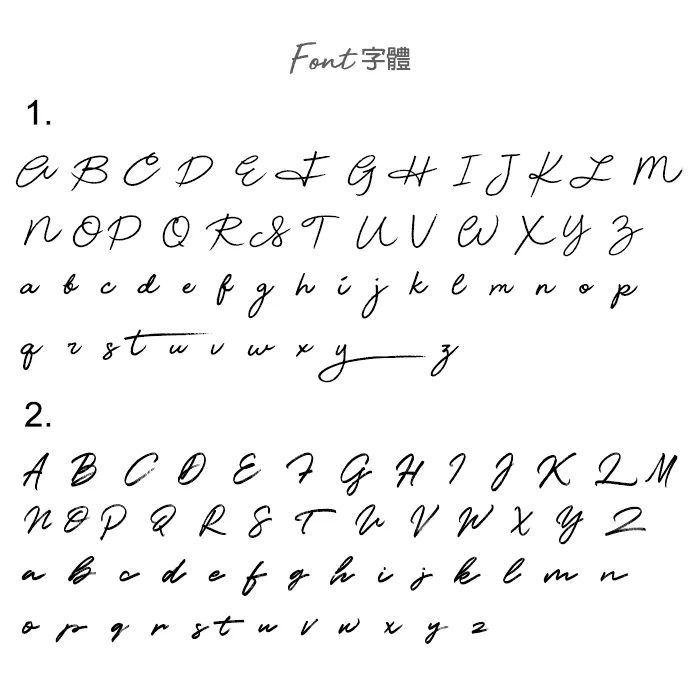 Font 字體
1.
A B C D E F G H I J K L M
N O P Q R S T U V W X Y Z
a b c d e f g h i j k l m n o p
q r s t u v w x y z
2.
A B C D E F G H I J K L M
N O P Q R S T U V W X Y Z
a b c d e f g h i j k l m n
o p q r s t u v w x y z